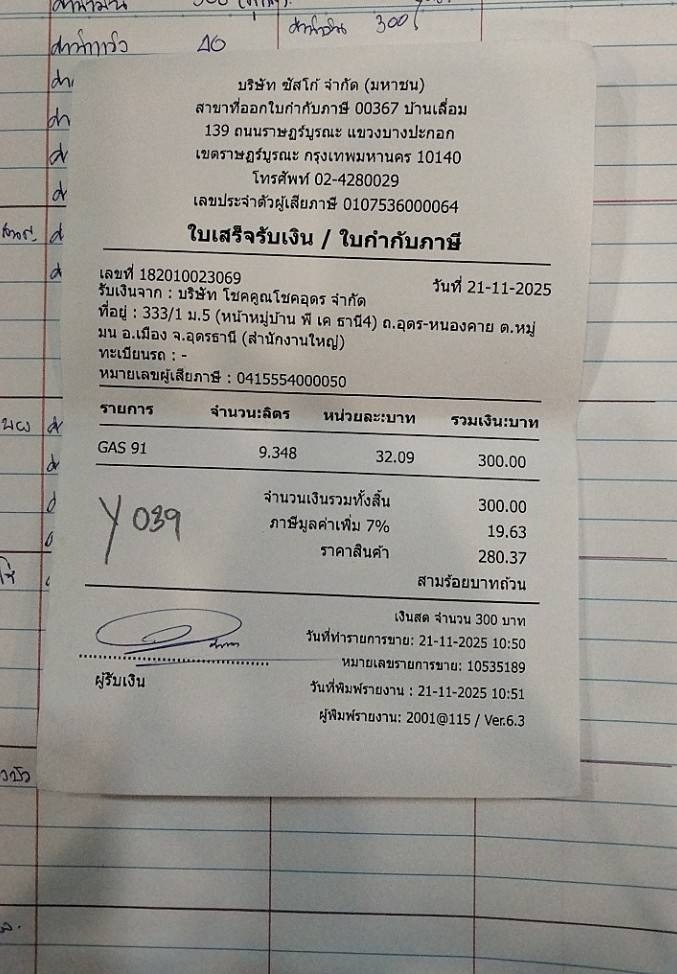 300
40
300
บริษัท ซัสโก้ จำกัด (มหาชน)
สาขาที่ออกใบกำกับภาษี 00367 บ้านเลื่อม
139 ถนนราษฎร์บูรณะ แขวงบางปะกอก
เขตราษฎร์บูรณะ กรุงเทพมหานคร 10140
โทรศัพท์ 02-4280029
เลขประจำตัวผู้เสียภาษี 0107536000064
ใบเสร็จรับเงิน / ใบกำกับภาษี
เลขที่ 182010023069 วันที่ 21-11-2025
รับเงินจาก : บริษัท โชคคูณโชคอุดร จำกัด
ที่อยู่ : 333/1 ม.5 (หน้าหมู่บ้าน พี เค ธานี4) ถ.อุดร-หนองคาย ต.หมู่
มน อ.เมือง จ.อุดรธานี (สำนักงานใหญ่)
ทะเบียนรถ : -
หมายเลขผู้เสียภาษี : 0415554000050
รายการ จำนวน:ลิตร หน่วยละ:บาท รวมเงิน:บาท
GAS 91 9.348 32.09 300.00
จำนวนเงินรวมทั้งสิ้น 300.00
ภาษีมูลค่าเพิ่ม 7% 19.63
ราคาสินค้า 280.37
Y 039
สามร้อยบาทถ้วน
เงินสด จำนวน 300 บาท
วันที่ทำรายการขาย: 21-11-2025 10:50
หมายเลขรายการขาย: 10535189
ผู้รับเงิน
วันที่พิมพ์รายงาน : 21-11-2025 10:51
ผู้พิมพ์รายงาน: 2001@115 / Ver.6.3